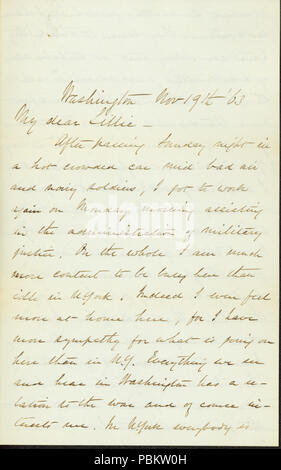 Washington Nov 19th '63
My dear Lillie -
After passing Sunday night in
a hot crowded car mid bad air
and noisy soldiers, I got to work
again on Monday morning assisting
in the administration of military
justice. On the whole I am much
more content to be busy here than
idle in N York. Indeed I even feel
more at home here, for I have
more sympathy for what is going on
here than in N.Y. Everything we see
and hear in Washington has a re-
lation to the war and of course in-
terests me. In N York everybody is
alamy
alamy stock photo
PBKW0H
www.alamy.com